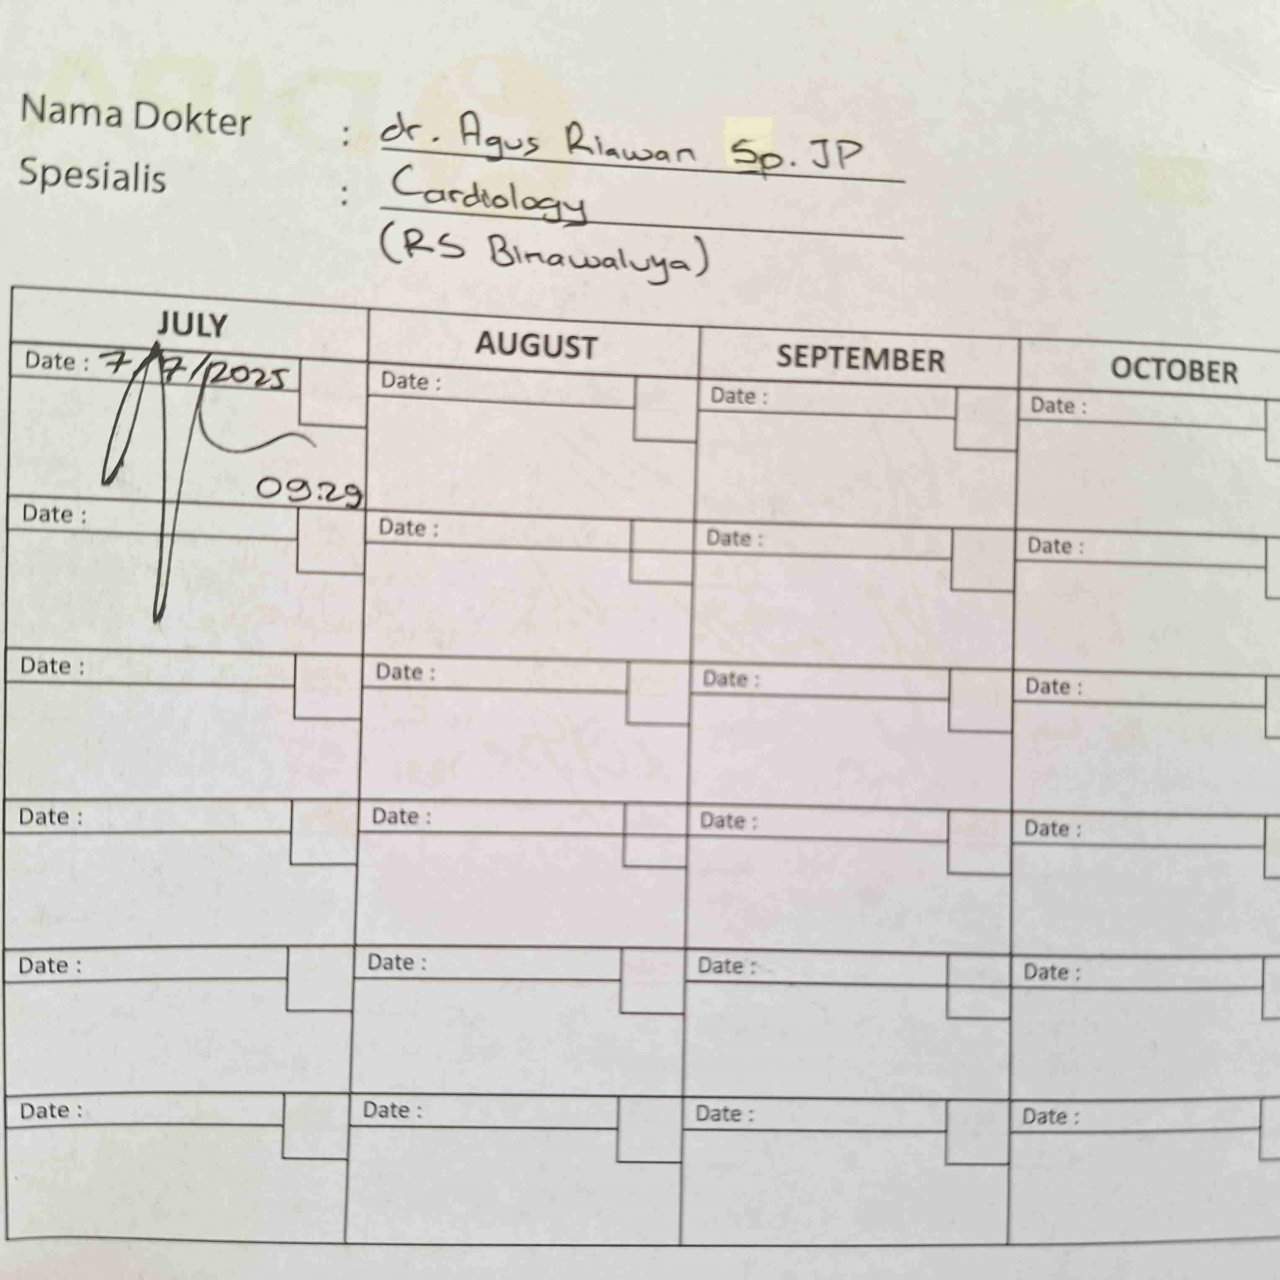 Nama Dokter : dr. Agus Riawan Sp. JP
Spesialis : Cardiology
(RS Binawaluya)
JULY AUGUST SEPTEMBER OCTOBER
Date : 7/7/2025 Date : Date : Date :
09:29
Date : Date : Date : Date :
Date : Date : Date : Date :
Date : Date : Date : Date :
Date : Date : Date : Date :
Date : Date : Date : Date :